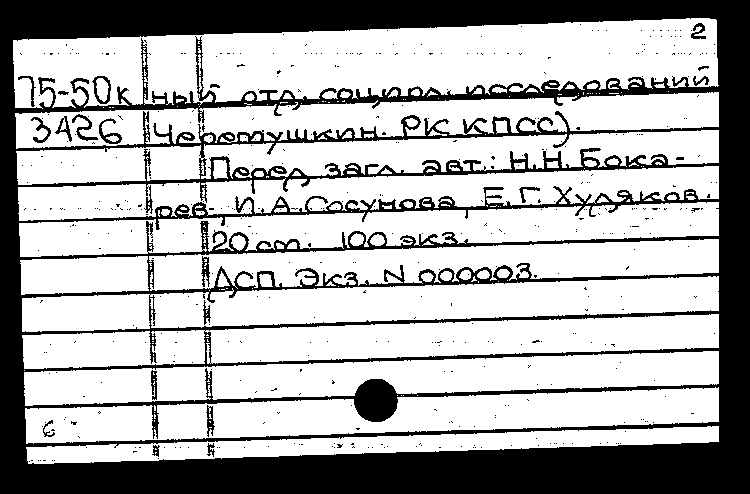 2
75-50к ный отд. соц.пол. исследований
3426 Черемушкин. РК КПСС).
Перед загл. авт.: Н.Н. Бока-
рев, И.А. Сосунова, Е.Г. Худяков.
20 см. 100 экз.
ДСП. Экз. N 000003.
6